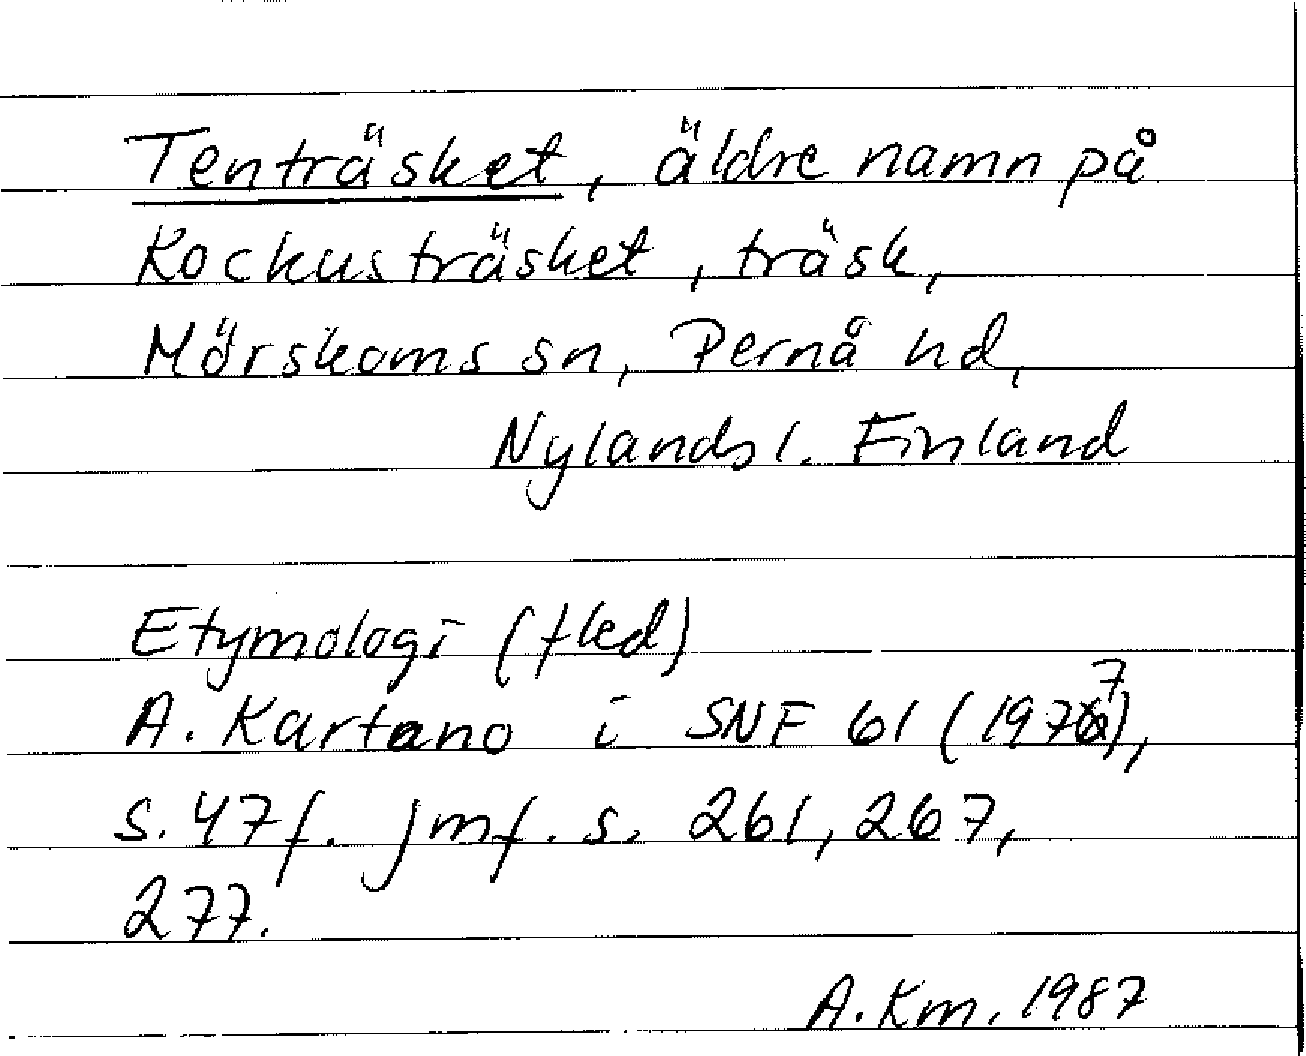 Tenträsket, äldre namn på
Kockusträsket, träsk,
Mörskoms sn, Pernå hd,
Nylands l. Finland
Etymologi (fled)
A. Kartano i SNF 61 (1977),
s. 47 f. jmf. s. 261, 267,
277.
A. Km. 1987